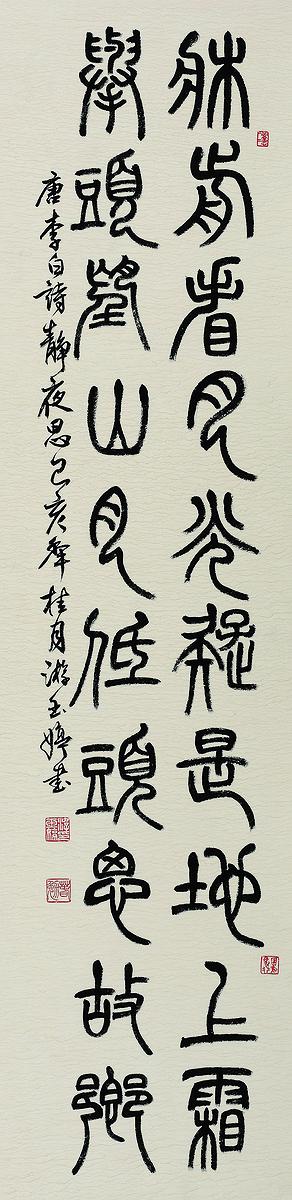 牀前看月光疑是地上霜
舉頭望山月低頭思故鄉
唐李白詩靜夜思己亥年桂月游玉婷書